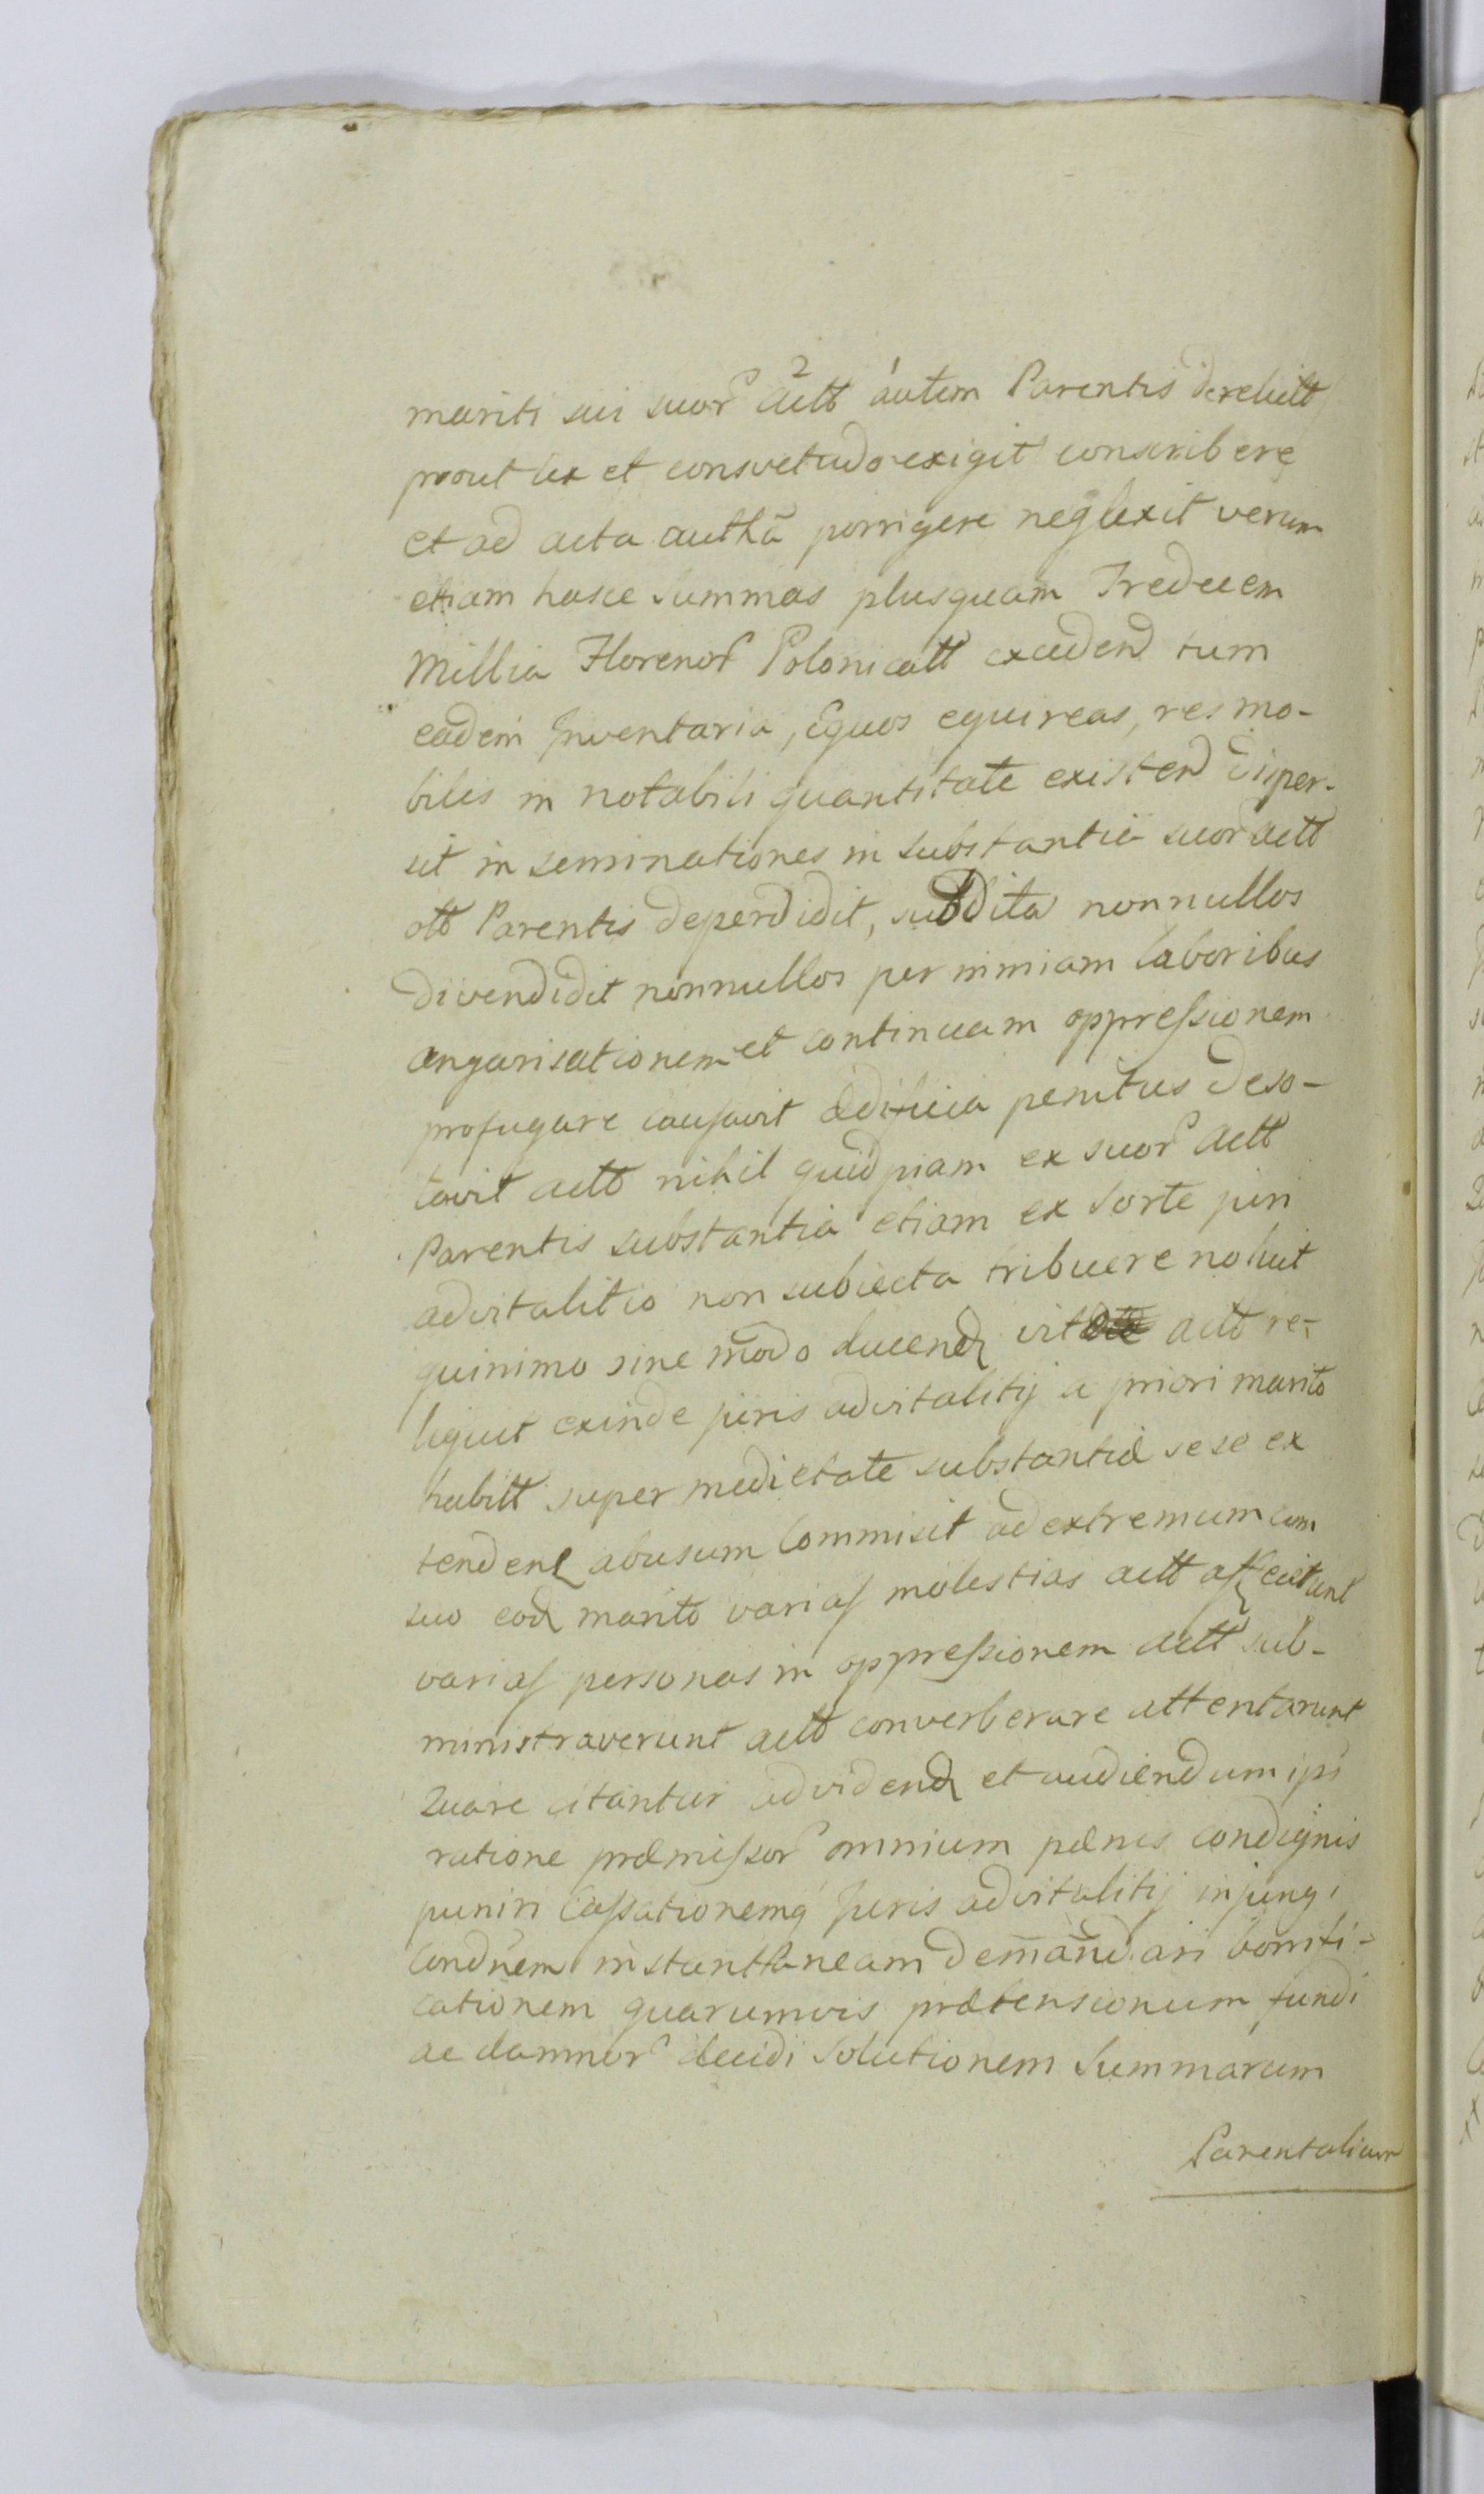 mariti sui suor actt autem Parentis derelictt
prout lex et consvetudo exigit conscribere
et ad acta authã porrigere neglexit verum
etiam hasce summas plusquam Tredecem
Millia Florenor Polonicatt excedend tum
eadem Inventaria, Equos equireas, res mo-
biles in notabili quantitate existend disper-
sit in seminationes in substantia suor actt
ott Parentis deperdidit, subdita nonnullos
divendidit nonnullos per nimiam laboribus
angarisationem et continuam oppressionem
profugare causavit ædificia penitus deso-
lavit actt nihil quidpiam ex suor Actt
Parentis substantia etiam ex sorte juri
advitalitio non subiecta tribuere noluit
quinimo sine modo ducend vitæ actt re-
liquit exinde juris advitalitij a priori marito
habitt super medietate substantiæ sese ex
tendent abusum Commisit ad extremum cum
suo eod marito varias molestias actt affecerunt
varias personas in oppressionem actt sub-
ministraverunt actt converberare attentarunt
Quare citantur ad vidend et audiendum ipsi
ratione præmissor omnium pænis condignis
puniri Cassationemq Juris advitalitij injungi
Condnem instantaneam demandari bonifi-
cationem quarumvis prætensionum fundi
ac damnor decidi solutionem Summarum
Parentalium